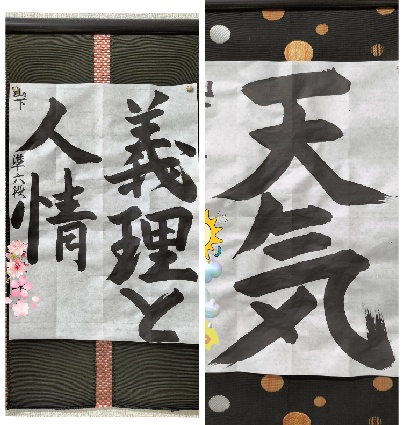 義理と
人情
準六段
山下
天気